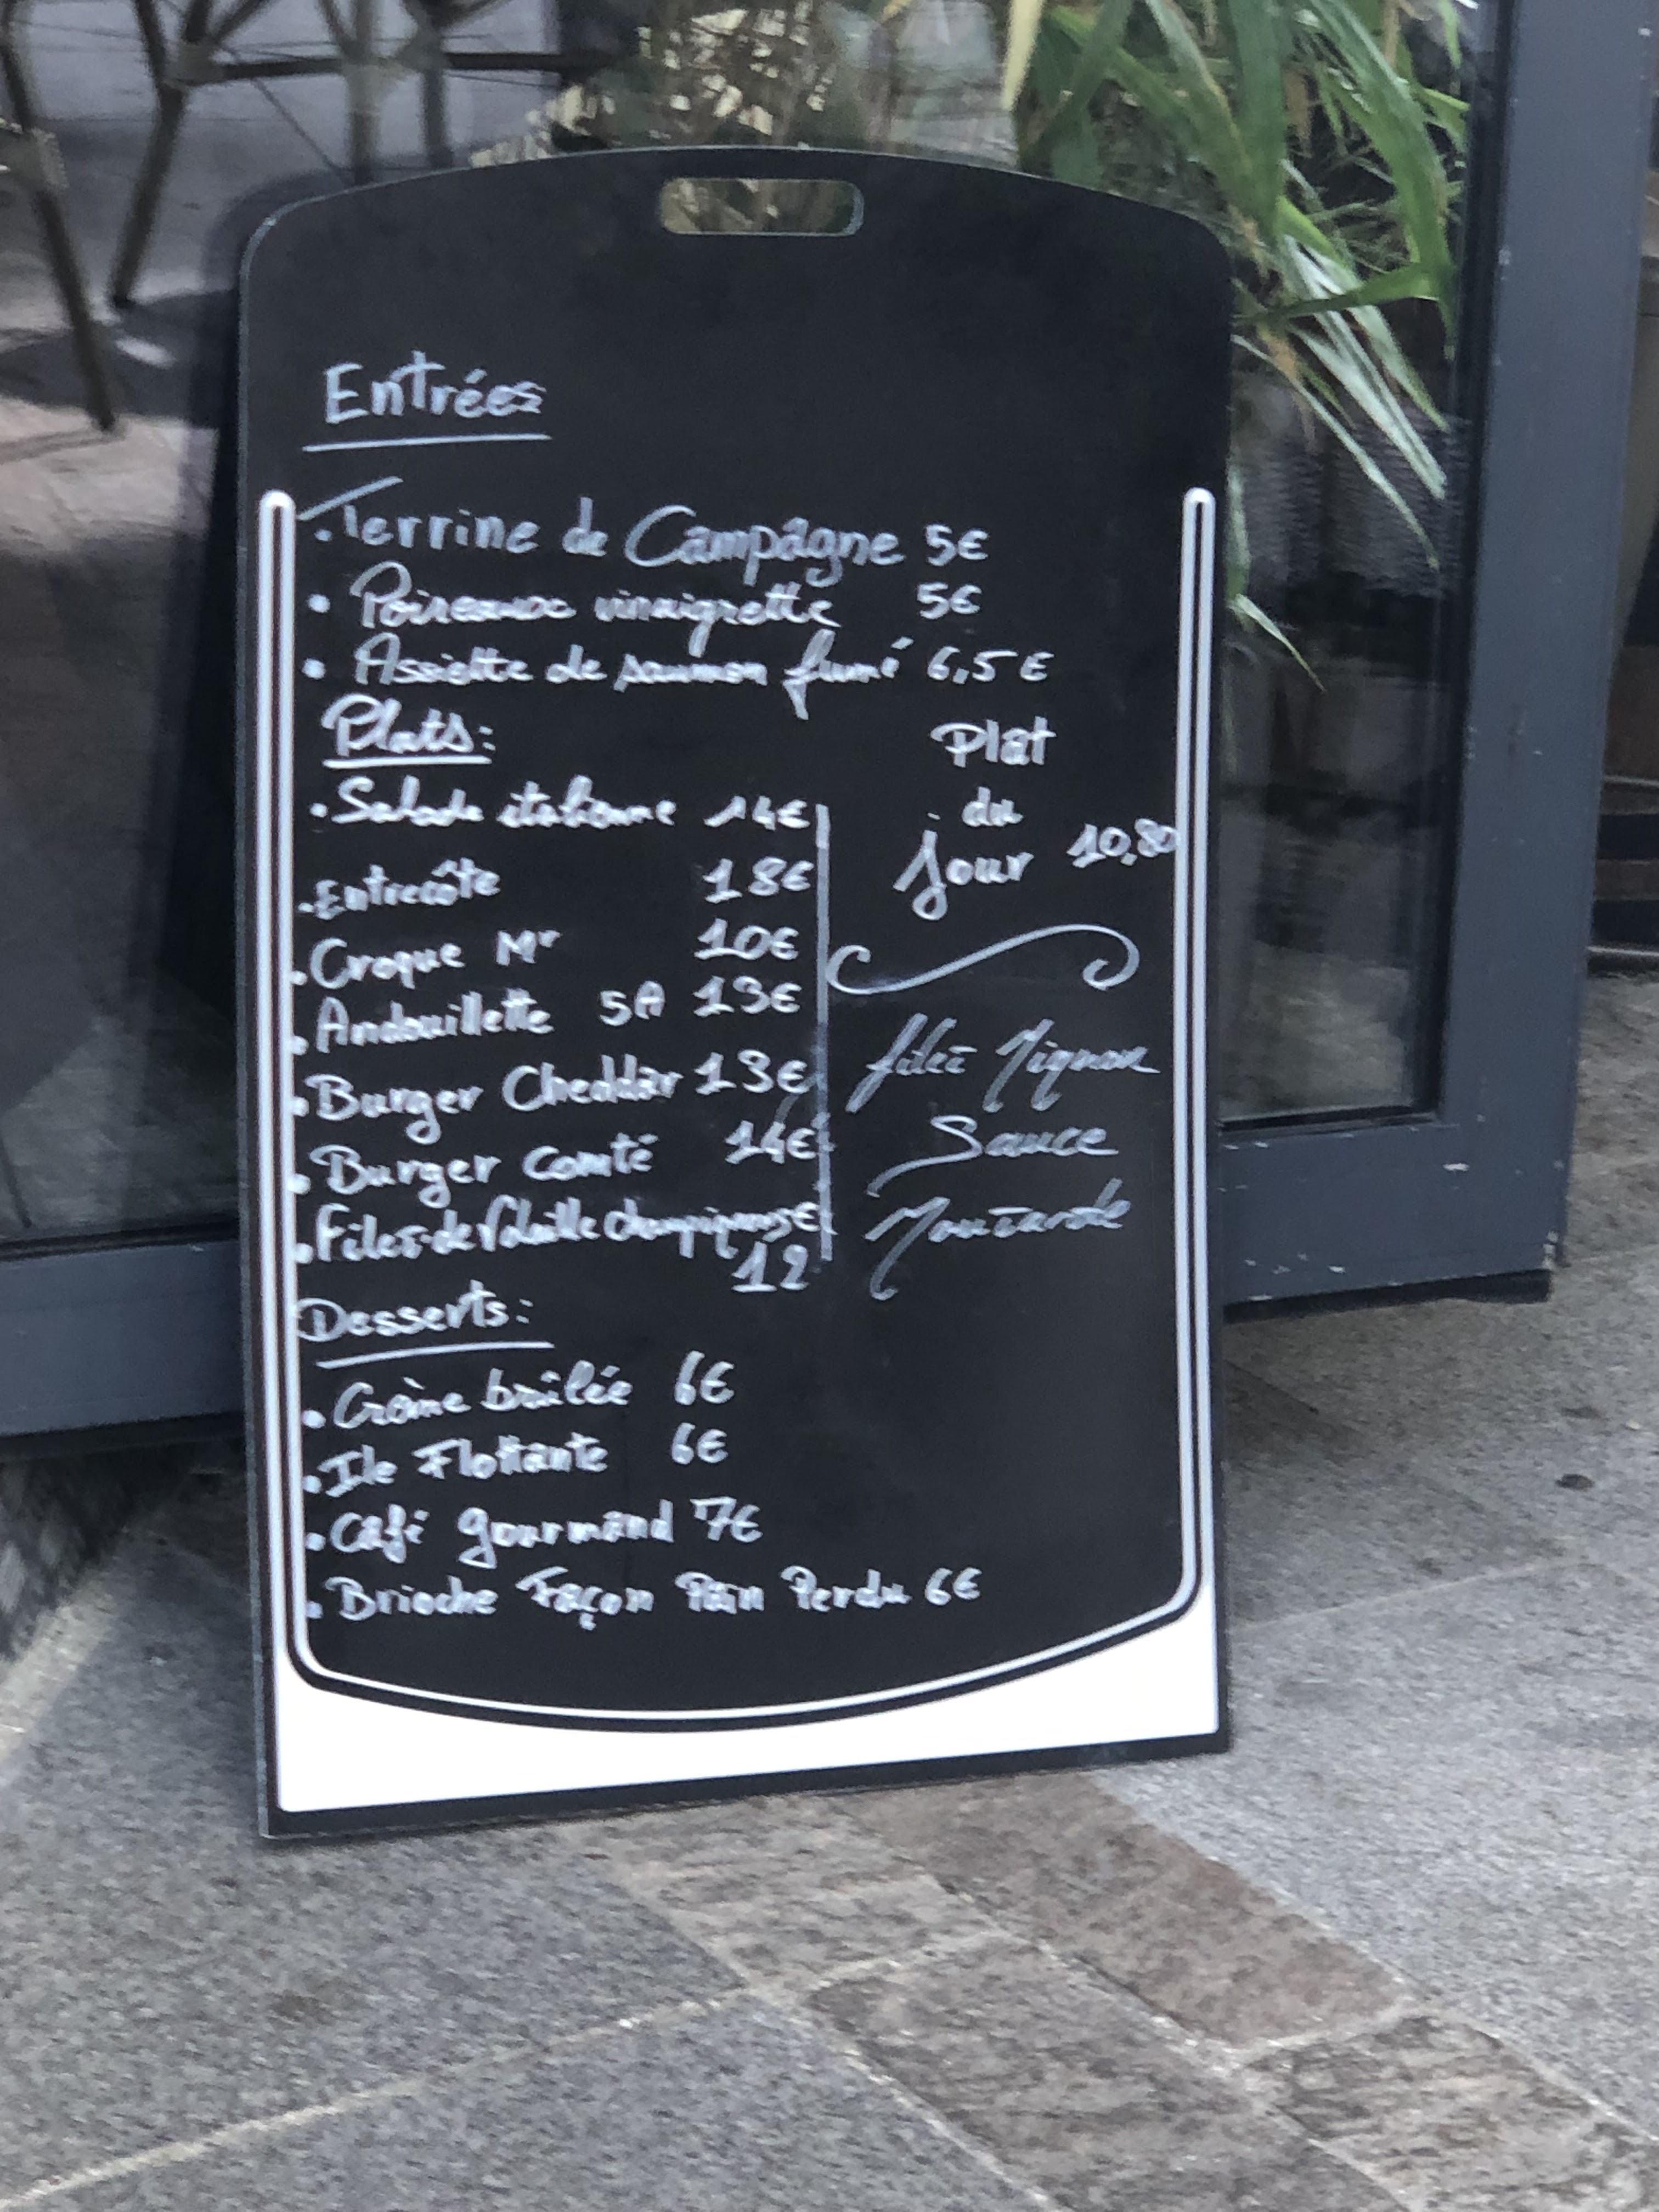 Entrées
. Terrine de Campagne 5€
• Poireaux vinaigrette 5€
• Assiette de saumon fumé 6,5€
Plats:
• Salade italienne 14€
• Entrecôte 18€
• Croque Mr 10€
• Andouillette 5A 13€
• Burger Cheddar 13€
• Burger Comté 14€
• Filet de Volaille champignons €
12
Plat
du
jour 10,80
filet Mignon
Sauce
Moutarde
Desserts:
• Crème brûlée 6€
• Ile Flottante 6€
• Café gourmand 7€
• Brioche Façon Pain Perdu 6€